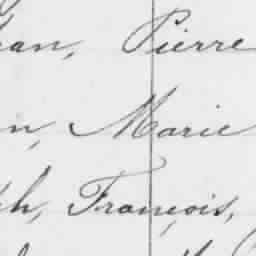 ean, Pierre
n, Marie
ph, François,